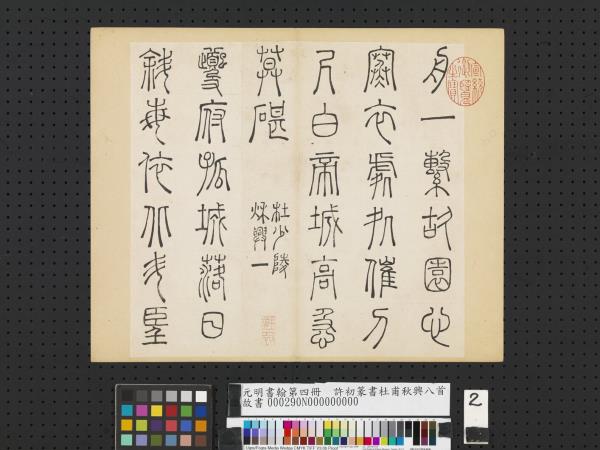 舟一繫故園心
寒衣處処催刀
尺白帝城高急
莫碪
杜少陵
秋興一
夔府孤城落日
斜每依北斗望
元明書翰第四冊　許初篆書杜甫秋興八首
故書 000290N000000000
2